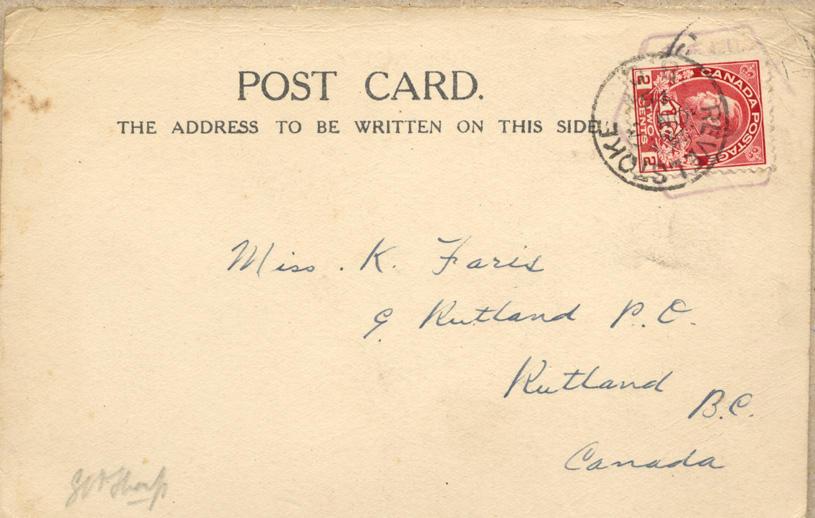 POST CARD.
THE ADDRESS TO BE WRITTEN ON THIS SIDE.
CANADA POSTAGE
2 TWO CENTS 2
REVELSTOKE
Miss. K. Faris
Rutland P.O.
Rutland
B.C.
Canada